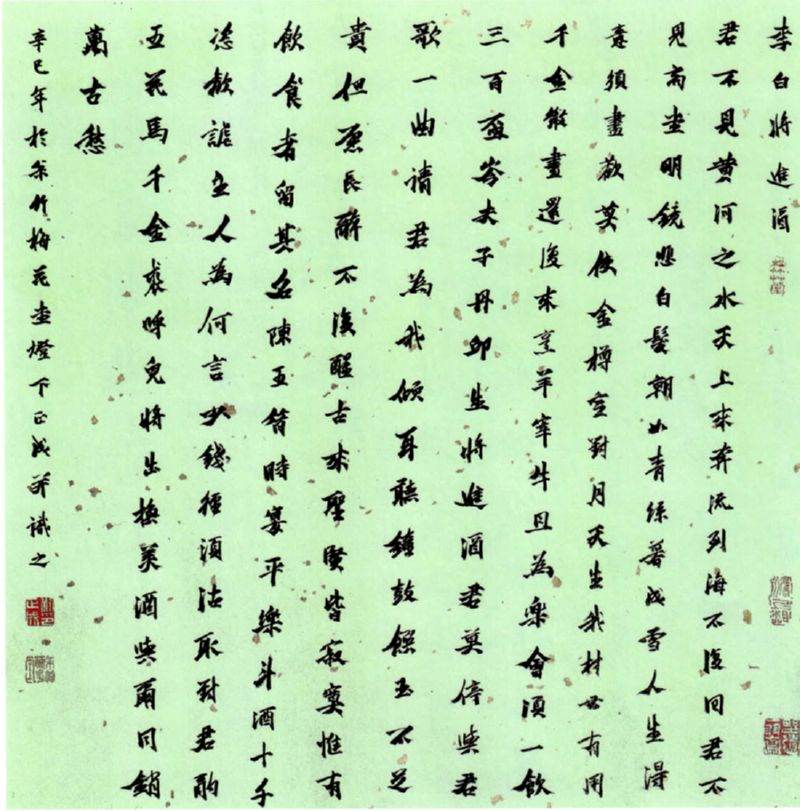 李白將進酒
君不見黃河之水天上来奔流到海不復回君不
見高堂明鏡悲白髮朝如青絲暮成雪人生得
意須盡歡莫使金樽空對月天生我材必有用
千金散盡還復来烹羊宰牛且為樂會須一飲
三百盃岑夫子丹邱生將進酒君莫停與君
歌一曲請君為我傾耳聽鐘鼓饌玉不足
貴但願長醉不復醒古来聖賢皆寂寞惟有
飲食者留其名陳王昔時宴平樂斗酒十千
恣歡謔主人為何言少錢徑須沽取對君酌
五花馬千金裘呼兒將出換美酒與爾同銷
萬古愁
辛巳年於竹梅花堂燈下正成并識之